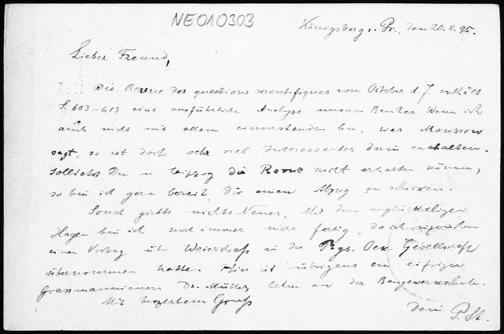 NE010303
Königsberg i. Pr., den 20. 11. 95.
Lieber Freund,
Die Revue des questions scientifiques vom October d. J. enthält
S. 603–613 eine ausführliche Analyse unseres Buches. Wenn ich
auch nicht mit allem einverstanden bin, was Mansion
sagt, so ist doch sehr viel Interessantes darin enthalten.
Solltest Du in Leipzig die Revue nicht erhalten können,
so bin ich gern bereit, Dir einen Abzug zu schicken.
Sonst giebts nichts Neues. Mit dem unglückseligen
Hagen bin ich noch immer nicht fertig, da ich
einen Vortrag über Weierstrass in der Phys. Oek. Gesellschaft
übernommen hatte. Hier ist übrigens ein eifriger
Grassmannianer Dr. Müller Lehrer an der Baugewerkschule.
Mit herzlichem Gruss
Dein P. St.